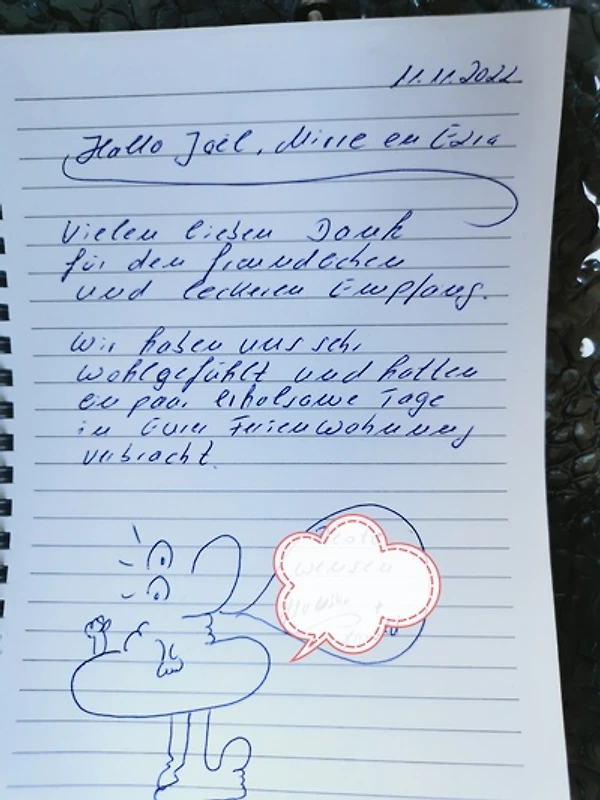 11.11.2022
Hallo Joël, Mirre en Ezra
Vielen lieben Dank
für den freundlichen
und leckeren Empfang.
Wir haben uns sehr
wohlgefühlt und hatten
ein paar erholsame Tage
in Eurer Ferienwohnung
verbracht.
wensen